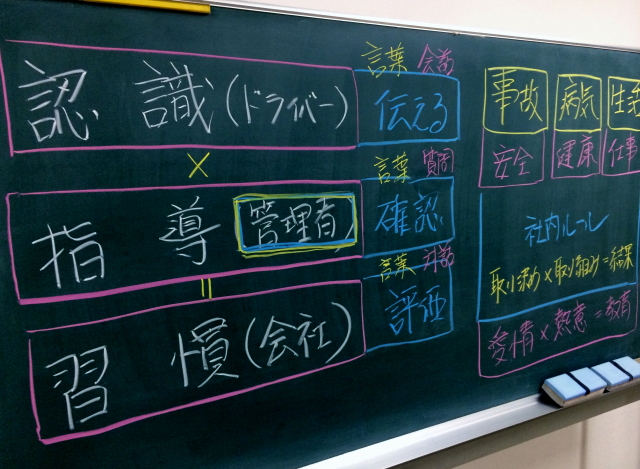 言葉 会話
認識(ドライバー) 伝える
×
言葉 質問
指導 管理者) 確認
=
言葉 対話
習慣(会社) 評価
事故 病気 生活
安全 健康 仕事
社内ルール
取り決め×取り組み=結果
愛情×熱意=教育